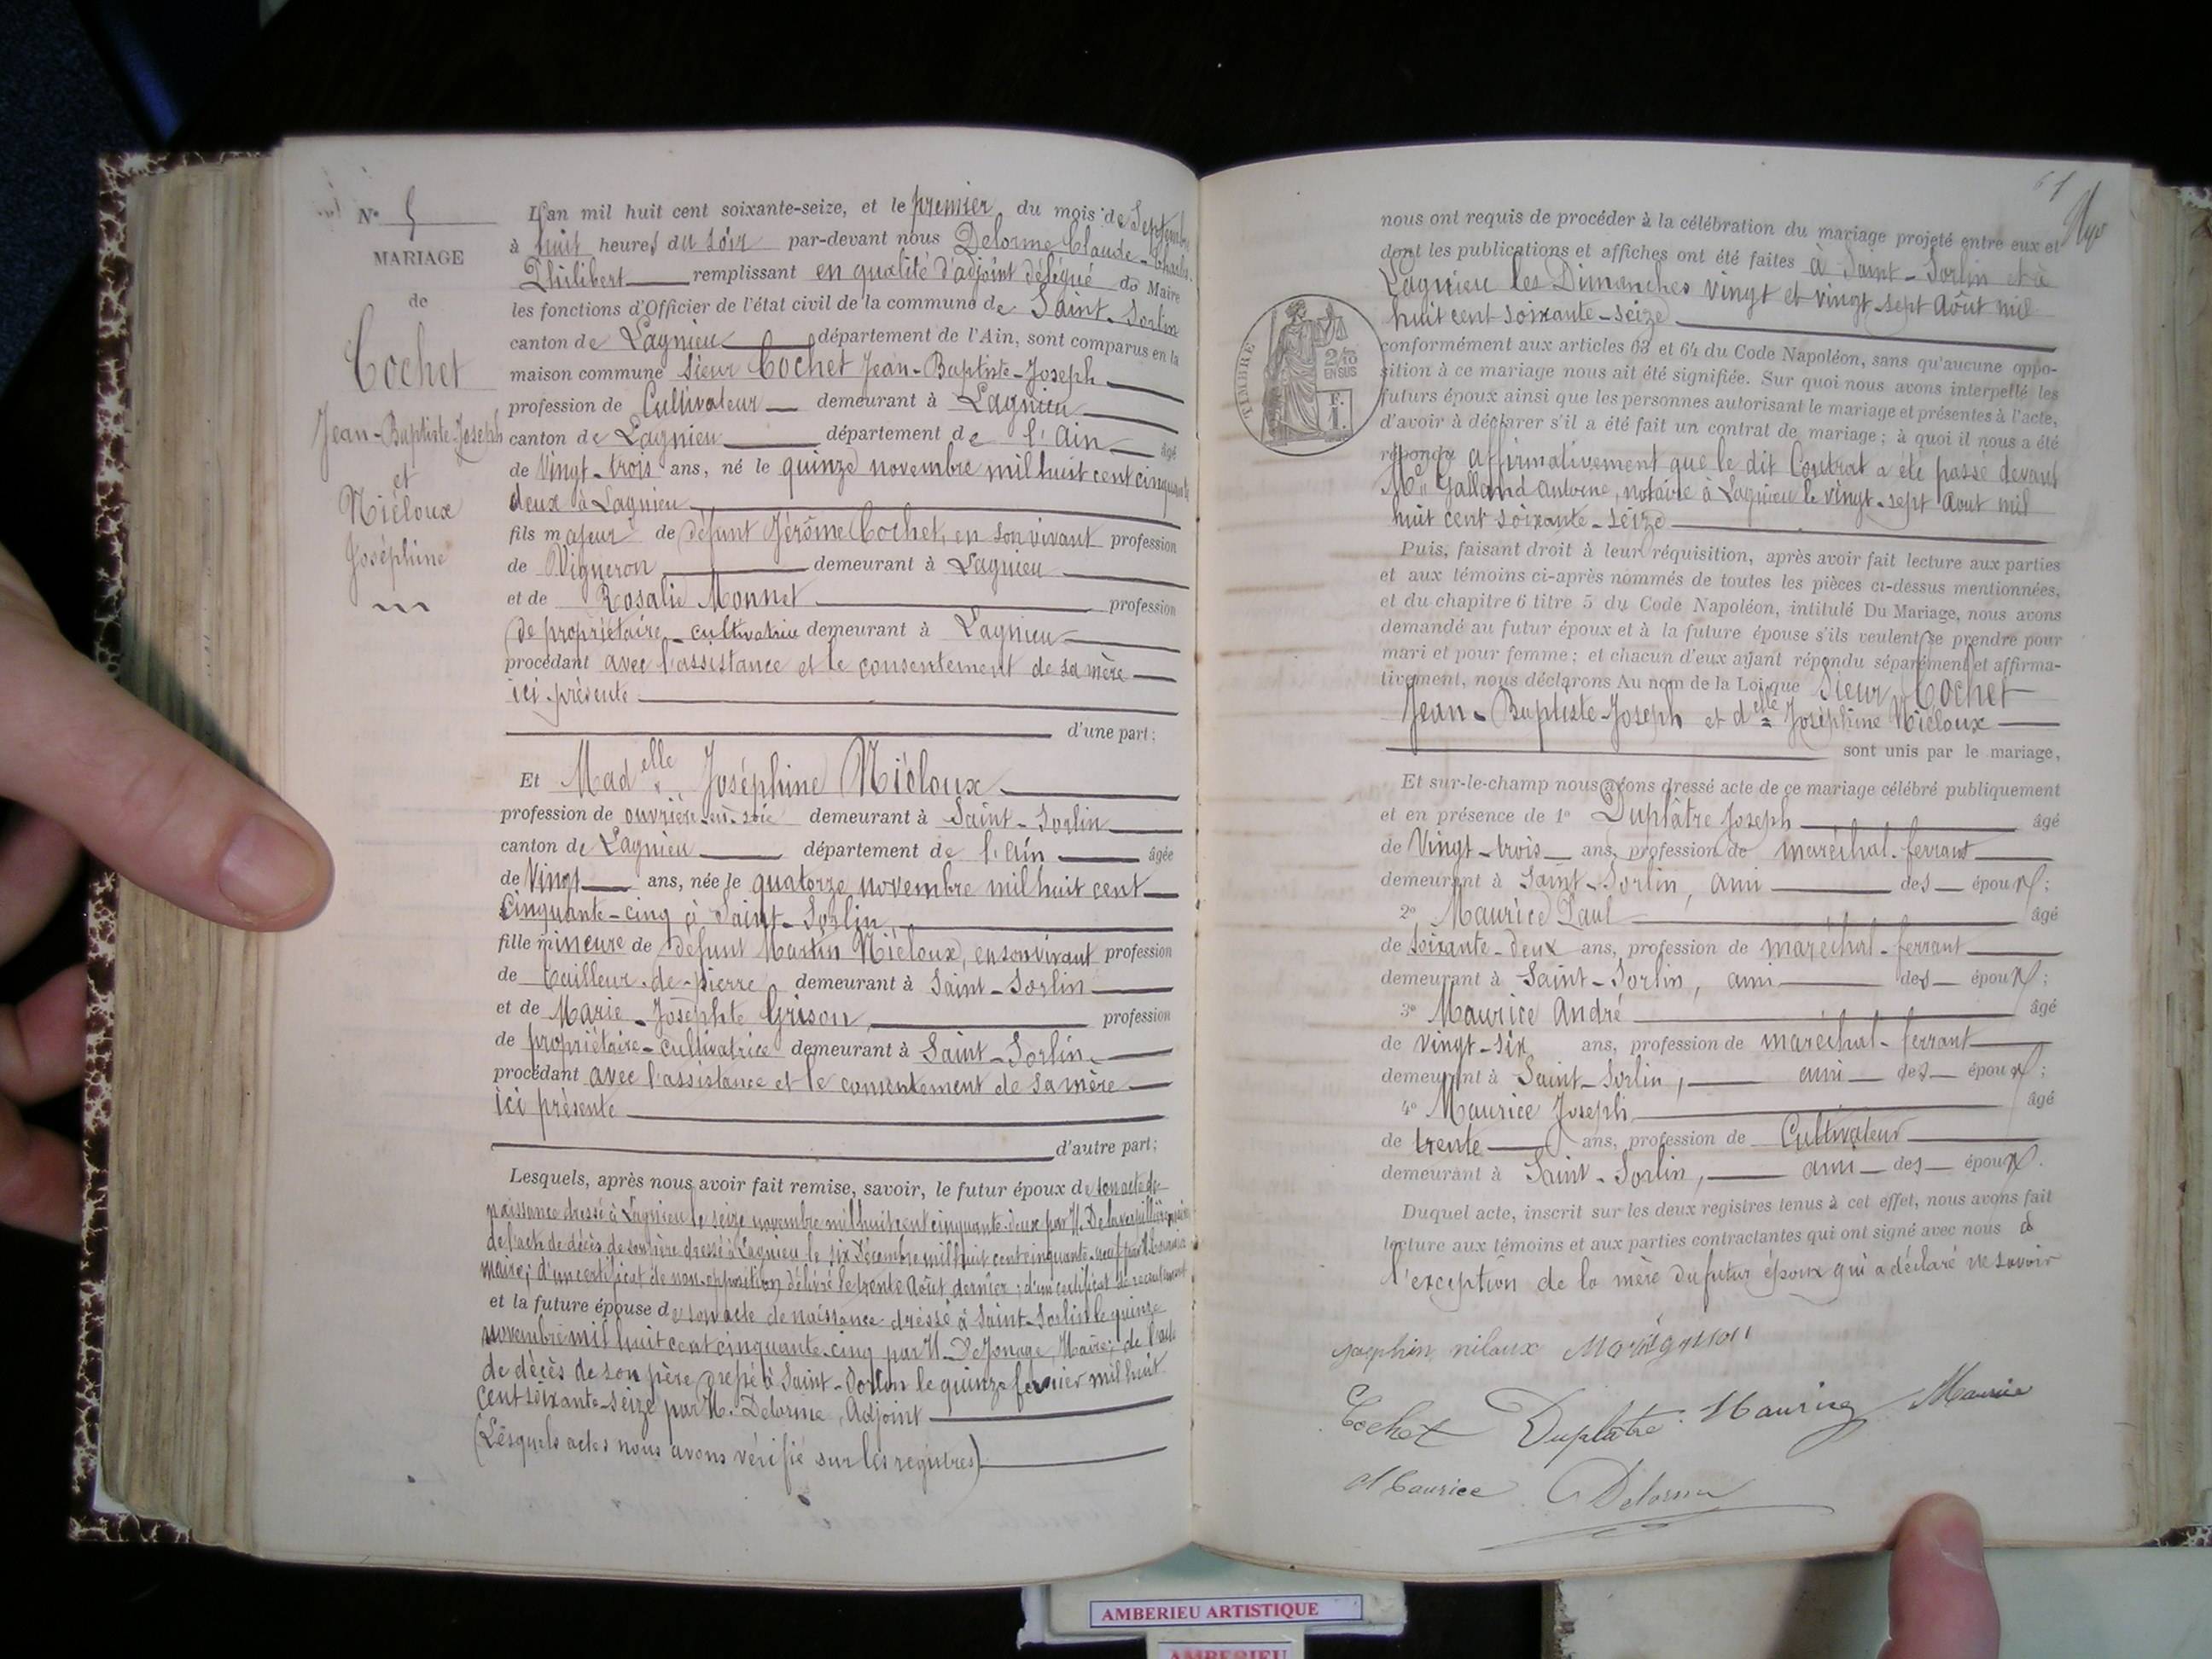 N° 5
MARIAGE
de
Cochet
Jean-Baptiste-Joseph
et
Niéloux
Joséphine
L'an mil huit cent soixante-seize, et le premier du mois de Septembre
à huit heures du soir par-devant nous Delorme Claude-Charles-
Philibert remplissant en qualité d'adjoint délégué do Maire
les fonctions d'Officier de l'état civil de la commune de Saint-Sorlin
canton de Lagnieu département de l'Ain, sont comparus en la
maison commune sieur Cochet Jean-Baptiste-Joseph
profession de Cultivateur demeurant à Lagnieu
canton de Lagnieu département de l'Ain âgé
de Vingt-trois ans, né le quinze novembre mil huit cent cinquante
deux à Lagnieu
fils majeur de défunt Jérôme Cochet, en son vivant profession
de Vigneron demeurant à Lagnieu
et de Rosalie Monnet profession
de propriétaire-cultivatrice demeurant à Lagnieu
procédant avec l'assistance et le consentement de sa mère
ici présente
d'une part;
Et Madelle Joséphine Niéloux
profession de ouvrière-en-soie demeurant à Saint-Sorlin
canton de Lagnieu département de l'Ain âgée
de Vingt ans, née le quatorze novembre mil huit cent
cinquante-cinq à Saint-Sorlin
fille mineure de défunt Martin Niéloux, en son vivant profession
de tailleur-de-pierre demeurant à Saint-Sorlin
et de Marie-Josephte Grison, profession
de propriétaire-cultivatrice demeurant à Saint-Sorlin
procédant avec l'assistance et le consentement de sa mère
ici présente
d'autre part;
Lesquels, après nous avoir fait remise, savoir, le futur époux de son acte de
naissance dressé à Lagnieu le seize novembre mil huit cent cinquante-deux par M.
de l'acte de décès de son père dressé à Lagnieu le six Décembre mil huit cent cinquante-neuf par M.
maire; d'un certificat de non-opposition délivré le trente Août dernier; d'un certificat de recrutement
et la future épouse de son acte de naissance dressé à Saint-Sorlin le quinze
novembre mil huit cent cinquante-cinq par M. DeJonage, Maire; de l'acte
de décès de son père dressé à Saint-Sorlin le quinze fevrier mil huit
cent soixante-seize par M. Delorme, Adjoint
(Lesquels actes nous avons vérifié sur les registres)
61
nous ont requis de procéder à la célébration du mariage projeté entre eux et
dont les publications et affiches ont été faites à Saint-Sorlin et à
Lagnieu les Dimanches vingt et vingt-sept Août mil
huit cent soixante-seize
TIMBRE
2/10
EN SUS
F.
1.
conformément aux articles 63 et 64 du Code Napoléon, sans qu'aucune oppo-
sition à ce mariage nous ait été signifiée. Sur quoi nous avons interpellé les
futurs époux ainsi que les personnes autorisant le mariage et présentes à l'acte,
d'avoir à déclarer s'il a été fait un contrat de mariage; à quoi il nous a été
répondu affirmativement que le dit Contrat a été passé devant
Me Galland Antoine, notaire à Lagnieu le vingt-sept Août mil
huit cent soixante-seize
Puis, faisant droit à leur réquisition, après avoir fait lecture aux parties
et aux témoins ci-après nommés de toutes les pièces ci-dessus mentionnées,
et du chapitre 6 titre 5 du Code Napoléon, intitulé Du Mariage, nous avons
demandé au futur époux et à la future épouse s'ils veulent se prendre pour
mari et pour femme; et chacun d'eux ayant répondu séparément et affirma-
tivement, nous déclarons Au nom de la Loi que Sieur Cochet
Jean-Baptiste-Joseph et delle Joséphine Niéloux
sont unis par le mariage,
Et sur-le-champ nous avons dressé acte de ce mariage célébré publiquement
et en présence de 1° Duplâtre Joseph âgé
de Vingt-trois ans, profession de maréchal-ferrant
demeurant à Saint-Sorlin, ami des époux;
2° Maurice Paul âgé
de soixante-deux ans, profession de maréchal-ferrant
demeurant à Saint-Sorlin, ami des époux;
3° Maurice André âgé
de vingt-six ans, profession de maréchal-ferrant
demeurant à Saint-Sorlin, ami des époux;
4° Maurice Joseph âgé
de trente ans, profession de Cultivateur
demeurant à Saint-Sorlin, ami des époux.
Duquel acte, inscrit sur les deux registres tenus à cet effet, nous avons fait
lecture aux témoins et aux parties contractantes qui ont signé avec nous à
l'exception de la mère du futur époux qui a déclaré ne savoir
josephin niloux Marie grison
Cochet Duplatre Maurice Maurice
Maurice Delorme
AMBERIEU ARTISTIQUE
AMBERIEU